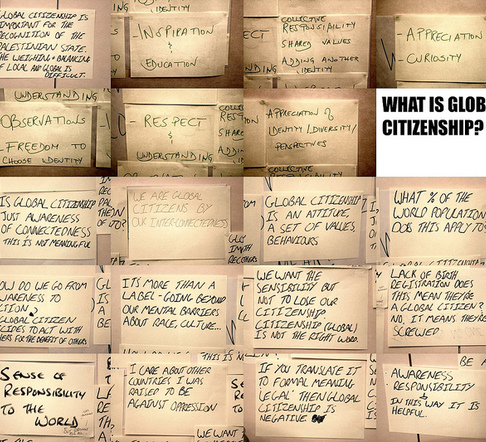 GLOBAL CITIZENSHIP IS
IMPORTANT FOR THE
RECOGNITION OF THE
PALESTINIAN STATE.
THE WEIGHING & BALANCING
OF LOCAL AND GLOBAL IS
DIFFICULT
- INSPIRATION
&
EDUCATION
COLLECTIVE
RESPONSIBILITY
SHARED VALUES
ADDING ANOTHER
IDENTITY
- APPRECIATION
- CURIOSITY
UNDERSTANDING
OBSERVATIONS
- FREEDOM TO
CHOOSE IDENTITY
- RESPECT
&
UNDERSTANDING
APPRECIATION OF
IDENTITY/DIVERSITY/
PERSPECTIVES
COLLECTIVE
WHAT IS GLOB
CITIZENSHIP?
IS GLOBAL CITIZENSHIP
JUST AWARENESS
OF CONNECTEDNESS
THIS IS NOT MEANINGFUL
WE ARE GLOBAL
CITIZENS BY
OUR INTERCONNECTEDNESS
GLOBAL CITIZENSHIP
IS AN ATTITUDE,
A SET OF VALUES,
BEHAVIOURS
WHAT % OF THE
WORLD POPULATION
DOES THIS APPLY TO?
OW DO WE GO FROM
WARENESS TO
CTION?
GLOBAL CITIZEN
CIDES TO ACT WITH
HERS FOR THE BENEFIT OF OTHERS
ITS MORE THAN A
LABEL - GOING BEYOND
OUR MENTAL BARRIERS
ABOUT RACE, CULTURE...
WE WANT THE
SENSIBILITY BUT
NOT TO LOSE OUR
CITIZENSHIP.
CITIZENSHIP (GLOBAL)
IS NOT THE RIGHT WORD.
LACK OF BIRTH
REGISTRATION DOES
THIS MEAN THEY'RE
A GLOBAL CITIZEN?
NO, IT MEANS THEY'RE
SCREWED
SENSE OF
RESPONSIBILITY
TO THE
WORLD
I CARE ABOUT OTHER
COUNTRIES I WAS
RAISED TO BE
AGAINST OPRESSION
WE WANT
IF YOU TRANSLATE IT
TO FORMAL MEANING
'LEGAL' THEN GLOBAL
CITIZENSHIP IS
NEGATIVE
AWARENESS
RESPONSIBILITY
IN THIS WAY IT IS
HELPFUL.